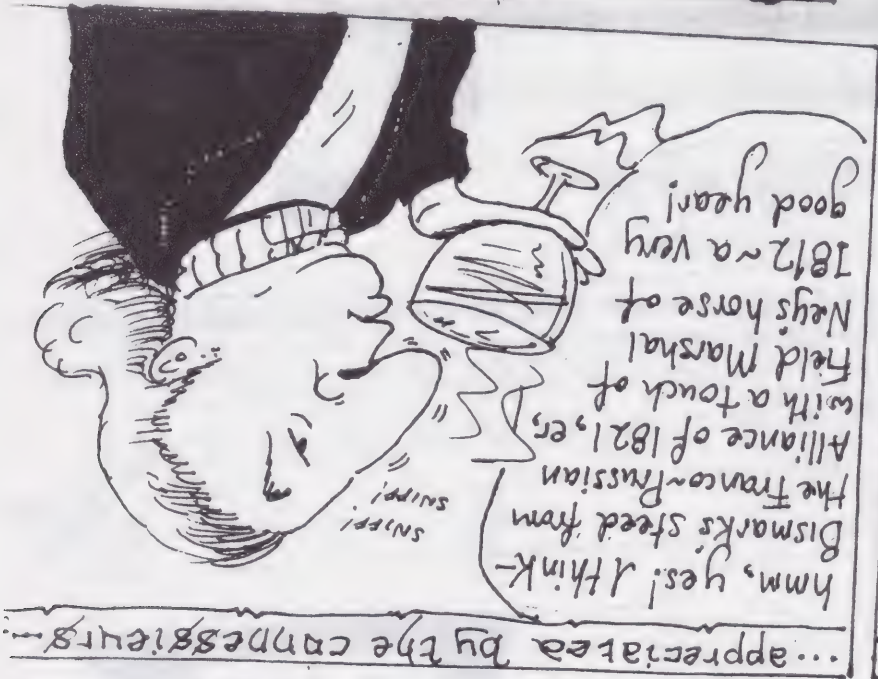 ...appreciated by the connessieurs...
hmm, yes! I think-
Bismark's steed from
the Franco-Prussian
Alliance of 1821, er,
with a touch of
Field Marshal
Ney's horse of
1812~a very
good year!
SNIFF!
SNIFF!